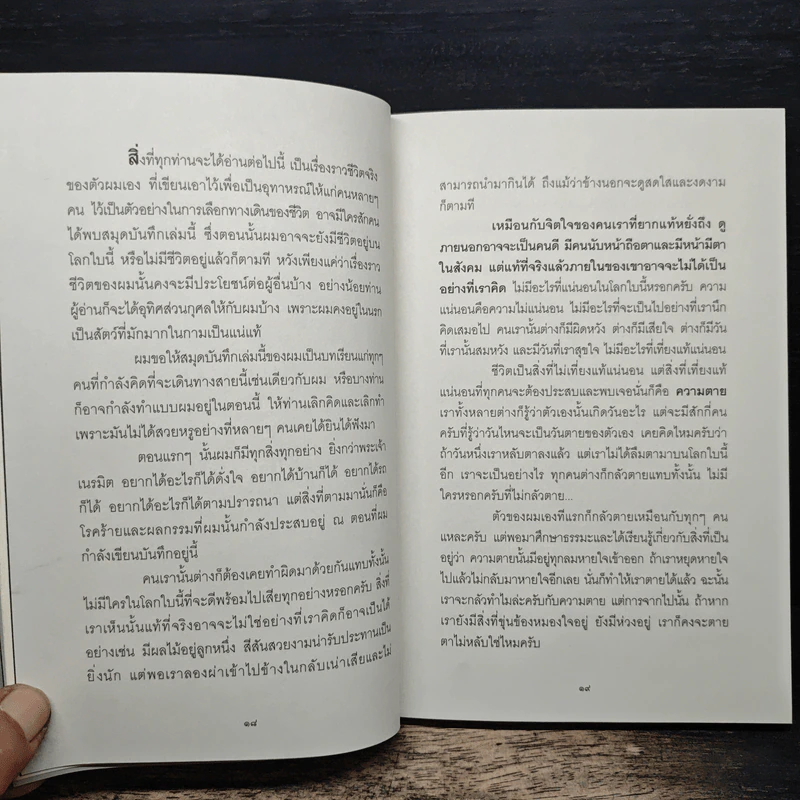 สิ่งที่ทุกท่านจะได้อ่านต่อไปนี้ เป็นเรื่องราวชีวิตจริง
ของตัวผมเอง ที่เขียนเอาไว้เพื่อเป็นอุทาหรณ์ให้แก่คนหลายๆ
คน ไว้เป็นตัวอย่างในการเลือกทางเดินของชีวิต อาจมีใครสักคน
ได้พบสมุดบันทึกเล่มนี้ ซึ่งตอนนั้นผมอาจจะยังมีชีวิตอยู่บน
โลกใบนี้ หรือไม่มีชีวิตอยู่แล้วก็ตามที หวังเพียงแค่ว่าเรื่องราว
ชีวิตของผมนั้นคงจะมีประโยชน์ต่อผู้อื่นบ้าง อย่างน้อยท่าน
ผู้อ่านก็จะได้อุทิศส่วนกุศลให้กับผมบ้าง เพราะผมคงอยู่ในนรก
เป็นสัตว์ที่มักมากในกามเป็นแน่แท้
ผมขอให้สมุดบันทึกเล่มนี้ของผมเป็นบทเรียนแก่ทุกๆ
คนที่กำลังคิดที่จะเดินทางสายนี้เช่นเดียวกับผม หรือบางท่าน
ก็อาจกำลังทำแบบผมอยู่ในตอนนี้ ให้ท่านเลิกคิดและเลิกทำ
เพราะมันไม่ได้สวยหรูอย่างที่หลายๆ คนเคยได้ยินได้ฟังมา
ตอนแรกๆ นั้นผมก็มีทุกสิ่งทุกอย่าง ยิ่งกว่าพระเจ้า
เนรมิต อยากได้อะไรก็ได้ดั่งใจ อยากได้บ้านก็ได้ อยากได้รถ
ก็ได้ อยากได้อะไรก็ได้ตามปรารถนา แต่สิ่งที่ตามมานั้นก็คือ
โรคร้ายและผลกรรมที่ผมนั้นกำลังประสบอยู่ ณ ตอนที่ผม
กำลังเขียนบันทึกอยู่นี้
คนเรานั้นต่างก็ต้องเคยทำผิดมาด้วยกันแทบทั้งนั้น
ไม่มีใครในโลกใบนี้ที่จะดีพร้อมไปเสียทุกอย่างหรอกครับ สิ่งที่
เราเห็นนั้นแท้ที่จริงอาจจะไม่ใช่อย่างที่เราคิดก็อาจเป็นได้
อย่างเช่น มีผลไม้อยู่ลูกหนึ่ง สีสันสวยงามน่ารับประทานเป็น
ยิ่งนัก แต่พอเราลองผ่าเข้าไปข้างในกลับเน่าเสียและไม่
๑๘
สามารถนำมากินได้ ถึงแม้ว่าข้างนอกจะดูสดใสและงดงาม
ก็ตามที
เหมือนกับจิตใจของคนเราที่ยากแท้หยั่งถึง ดู
ภายนอกอาจจะเป็นคนดี มีคนนับหน้าถือตาและมีหน้ามีตา
ในสังคม แต่แท้ที่จริงแล้วภายในของเขาอาจจะไม่ได้เป็น
อย่างที่เราคิด ไม่มีอะไรที่แน่นอนในโลกใบนี้หรอกครับ ความ
แน่นอนคือความไม่แน่นอน ไม่มีอะไรที่จะเป็นไปอย่างที่เรานึก
คิดเสมอไป คนเรานั้นต่างก็มีผิดหวัง ต่างก็มีเสียใจ ต่างก็มีวัน
ที่เรานั้นสมหวัง และมีวันที่เราสุขใจ ไม่มีอะไรที่เที่ยงแท้แน่นอน
ชีวิตเป็นสิ่งที่ไม่เที่ยงแท้แน่นอน แต่สิ่งที่เที่ยงแท้
แน่นอนที่ทุกคนจะต้องประสบและพบเจอนั่นก็คือ ความตาย
เราทั้งหลายต่างก็รู้ว่าตัวเองนั้นเกิดวันอะไร แต่จะมีสักกี่คน
ครับที่รู้ว่าวันไหนจะเป็นวันตายของตัวเอง เคยคิดไหมครับว่า
ถ้าวันหนึ่งเราหลับตาลงแล้ว แต่เราไม่ได้ลืมตามาบนโลกใบนี้
อีก เราจะเป็นอย่างไร ทุกคนต่างก็กลัวตายแทบทั้งนั้น ไม่มี
ใครหรอกครับที่ไม่กลัวตาย...
ตัวของผมเองทีแรกก็กลัวตายเหมือนกับทุกๆ คน
แหละครับ แต่พอมาศึกษาธรรมะและได้เรียนรู้เกี่ยวกับสิ่งที่เป็น
อยู่ว่า ความตายนั้นมีอยู่ทุกลมหายใจเข้าออก ถ้าเราหยุดหายใจ
ไปแล้วไม่กลับมาหายใจอีกเลย นั่นก็ทำให้เราตายได้แล้ว ฉะนั้น
เราจะกลัวทำไมล่ะครับกับความตาย แต่การจากไปนั้น ถ้าหาก
เรายังมีสิ่งที่ขุ่นข้องหมองใจอยู่ ยังมีห่วงอยู่ เราก็คงจะตาย
ตาไม่หลับใช่ไหมครับ
๑๙